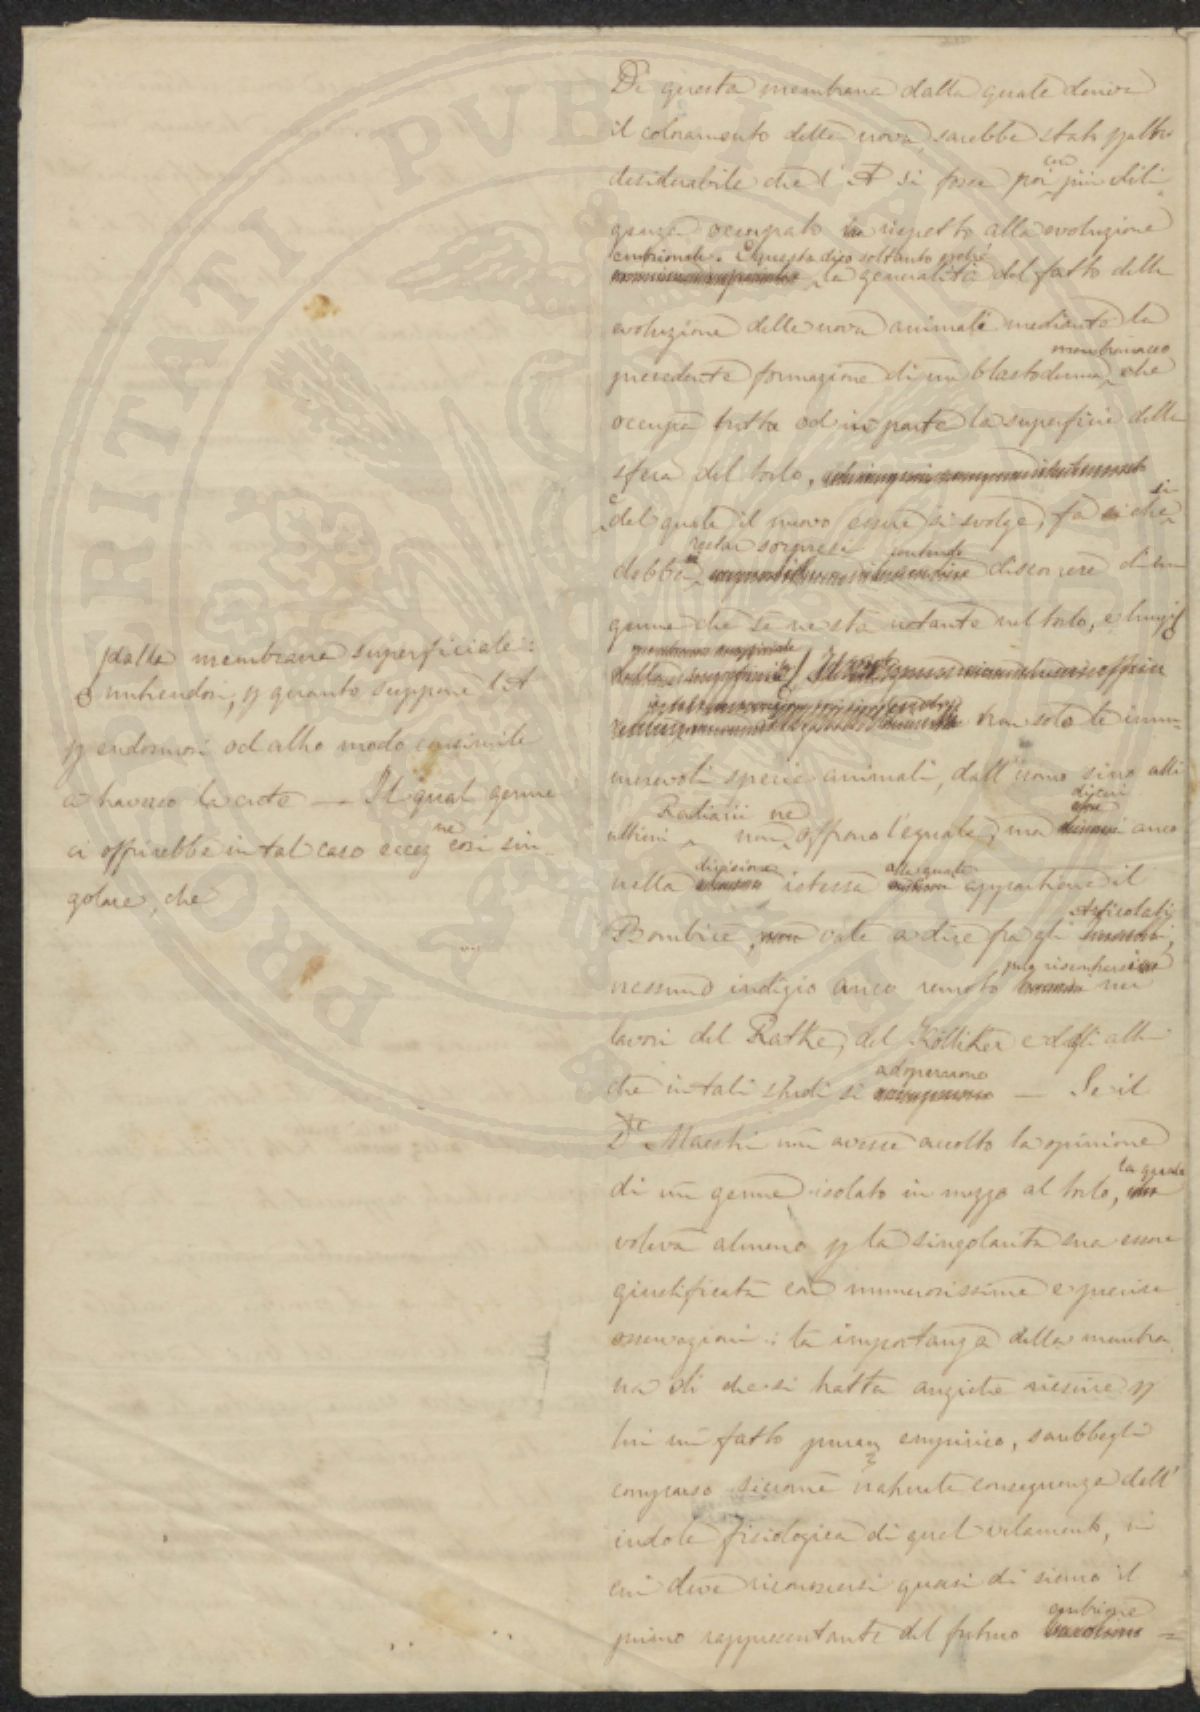 PROSPERITATI PUBLICAE
Di questa membrana dalla quale deriva
il coloramento delle uova, sarebbe stato
desiderabile che l' A si fosse poi con più dili
genza occupato in rispetto alla evoluzione
embrionale. Questo dico soltanto perché
la generalità del fatto della
evoluzione delle uova animali mediante la
precedente formazione di un blastoderma membranaceo che
occupa tutta od in parte la superficie della
sfera del torlo,
e del quale il nuovo essere si svolge, fa si che si
debba restar sorpresi sentendo discorrere di un
germe che se ne sta notante nel torlo, e lungi
dalla membrana superficiale:
nutrendosi, p quanto suppone l'A
p endosmosi od altro modo consimile
a traverso la cute — Il qual germe
ci offrirebbe in tal caso eccez.ne così sin-
golare, che
non solo le innu-
merevoli specie animali, dall'uomo sino alli
ultimi Radiarii non ne offrono l'eguale, ma anco
nella divisione istessa alla quale appartiene il
Bombice, vale a dire fra gli Articolati,
nessuno indizio anco remoto può riscontrarsi nei
lavori del Rathke, del Kölliker e degli altri
che in tali studi si adoperarono — Se il
D.re Maestri non avesse accolto la opinione
di un germe isolato in mezzo al torlo, la quale
voleva almeno p la singolarità sua essere
giustificata con numerosissime e precise
osservazioni: la importanza della membra
na di che si tratta anziché riescire p
lui un fatto puram.e empirico, sarebbegli
comparso siccome naturale conseguenza dell'
indole fisiologica di quel velamento, in
cui deve riconoscersi quasi di sicuro il
primo rappresentante del futuro embrione =